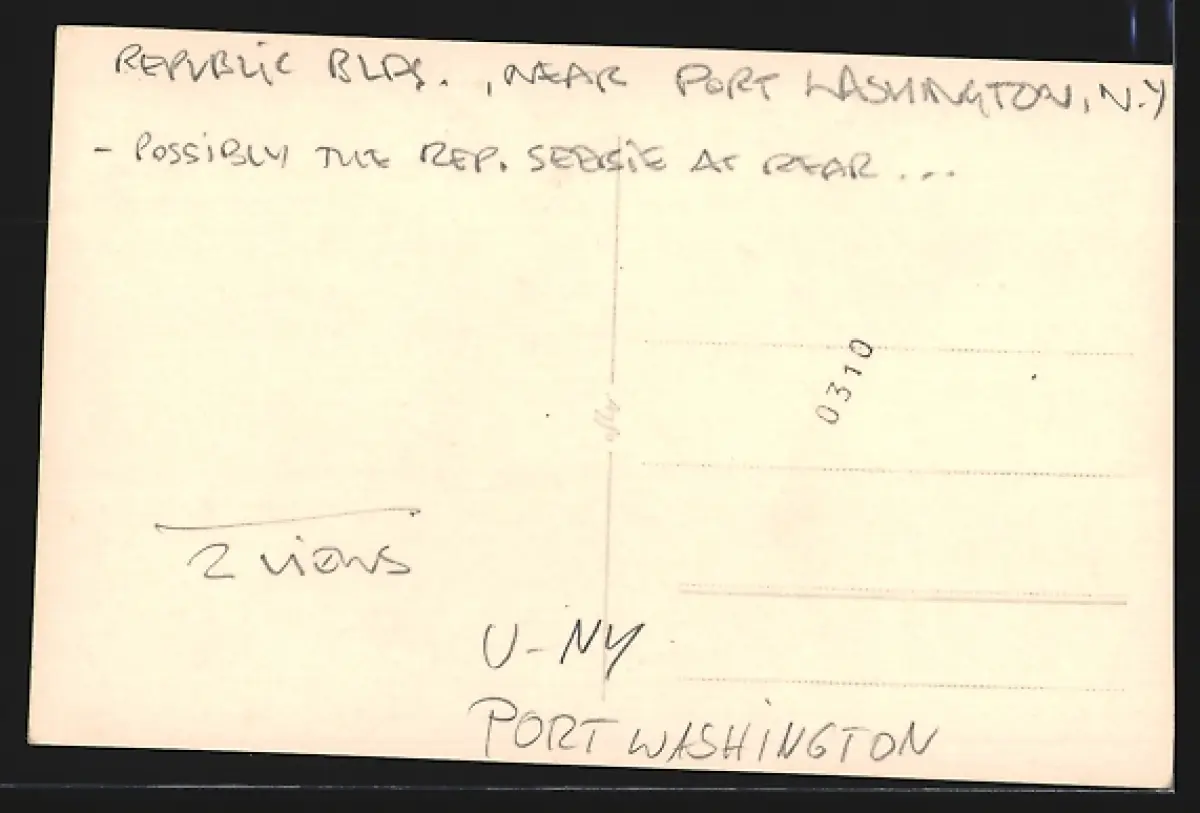 REPUBLIC BLDS. , NEAR PORT WASHINGTON, N.Y
- POSSIBLY THE REP. SEABEE AT REAR ...
0310
2 VIEWS
U-NY
PORT WASHINGTON